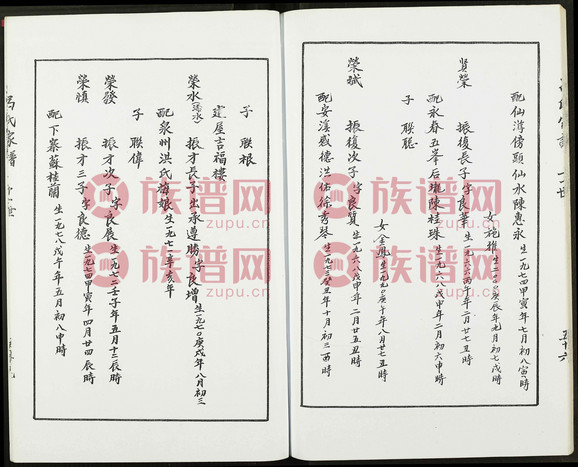 配仙游傍頭仙水陳惠永 生一九七四甲寅年七月初八寅時
女 生二〇〇〇庚辰年 月初七戌時
賢榮 振復長子字良華 生一九六六丙午年二月廿七丑時
配永春五峯后壠陳桂珠 生一九六八戊申年二月初六申時
子 聯聰
女金鳳 生一九九〇庚午年八月廿七丑時
榮斌 振復次子字良質 生一九六八戊申年二月廿五丑時
配安溪感德洪佑徐秀琴 生一九七三癸丑年十月初三酉時
五十六
子 聯根
建屋吉福樓
榮水(送水) 振才長子出承遵勝字良增 生一九七〇庚戌年八月初三
配泉州洪氏 娘 生一九七一辛亥年
子 聯偉
榮發 振才次子字良展 生一九七二壬子年五月十三辰時
榮順 振才三子字良德 生一九七四甲寅年四月廿四辰時
配下寮蘇桂蘭 生一九七八戊午年五月初八申時
氏家譜
族谱网
zupu.cn
族谱网
zupu.cn
族谱网
zupu.cn
族谱网
zupu.cn